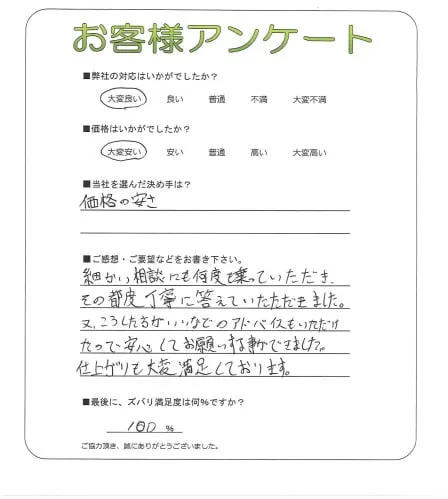 お客様アンケート
■弊社の対応はいかがでしたか?
大変良い 良い 普通 不満 大変不満
■価格はいかがでしたか?
大変安い 安い 普通 高い 大変高い
■当社を選んだ決め手は?
価格の安さ
■ご感想・ご要望などをお書き下さい。
細かい相談にも何度も乗っていただき、
その都度丁寧に答えていただきました。
又、こうした方がいいなどのアドバイスもいただけ
たので安心してお願いする事ができました。
仕上がりも大変満足しております。
■最後に、ズバリ満足度は何%ですか?
100 %
ご協力頂き、誠にありがとうございました。